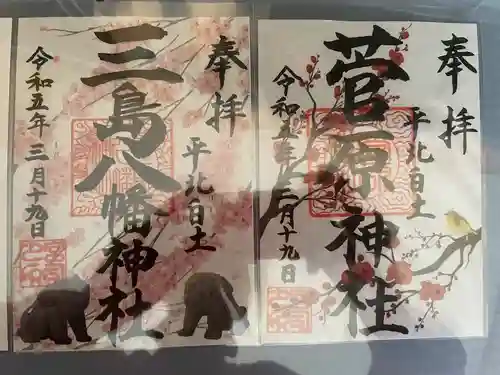 奉拝
平北白土
三島八幡神社
令和五年三月十九日
奉拝
平北白土
菅原神社
令和五年三月十九日